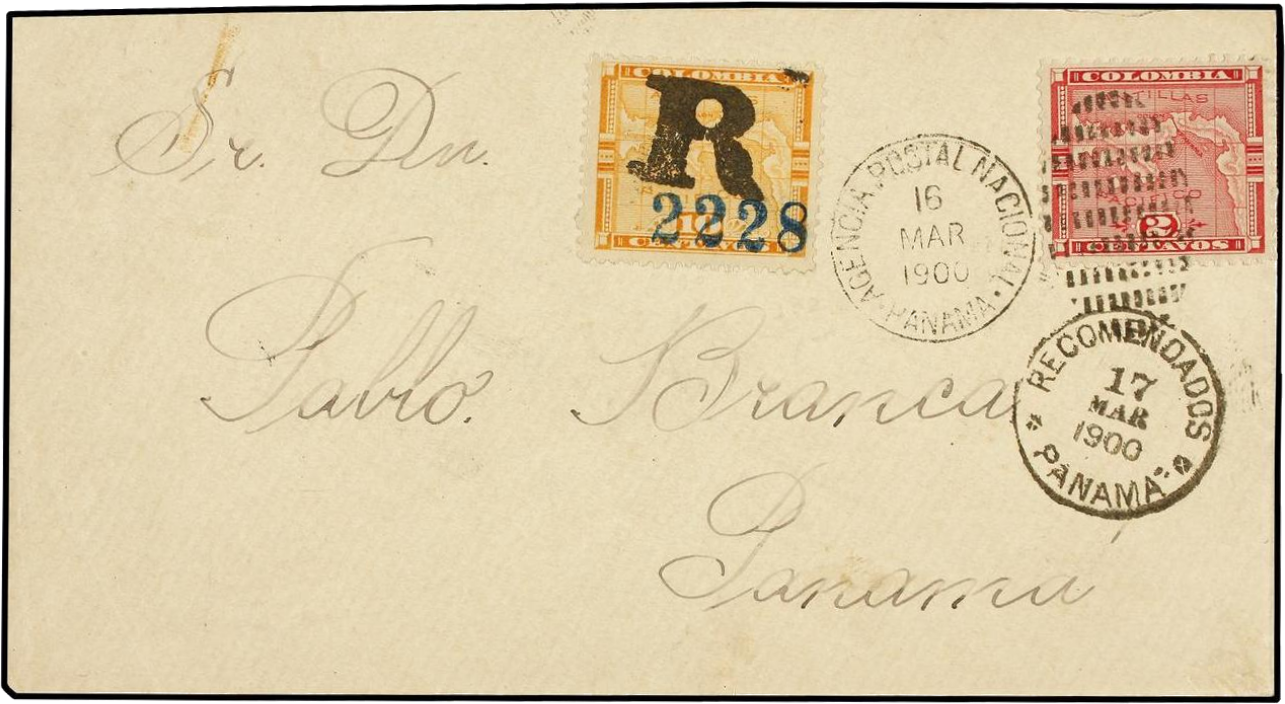 COLOMBIA
R
2228
10
CENTAVOS
AGENCIA POSTAL NACIONAL
16
MAR
1900
PANAMA
COLOMBIA
ANTILLAS
PACIFICO
2
CENTAVOS
RECOMENDADOS
17
MAR
1900
PANAMA
Sr. Dn.
Pablo. Branca
Panama